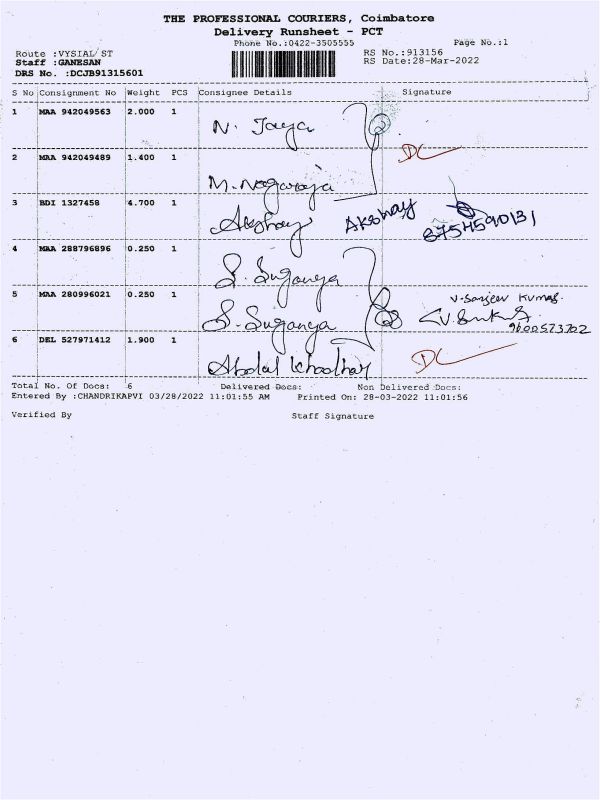 THE PROFESSIONAL COURIERS, Coimbatore
Delivery Runsheet - PCT
Phone No.:0422-3505555
Page No.:1
Route :VYSIAL ST
RS No.:913156
Staff :GANESAN
RS Date:28-Mar-2022
DRS No. :DCJB91315601
S No Consignment No Weight PCS Consignee Details Signature
1 MAA 942049563 2.000 1 N. Jaya
2 MAA 942049489 1.400 1 M. Nagaraja DC
3 BDI 1327458 4.700 1 Akshay AKshay 8754590131
4 MAA 288796896 0.250 1 S. Suganya
5 MAA 280996021 0.250 1 S. Suganya V. Sanjeev Kumar.
9600573702
6 DEL 527971412 1.900 1 Abdal khadhar DC
Total No. Of Docs: 6 Delivered Docs: Non Delivered Docs:
Entered By :CHANDRIKAPVI 03/28/2022 11:01:55 AM Printed On: 28-03-2022 11:01:56
Verified By Staff Signature